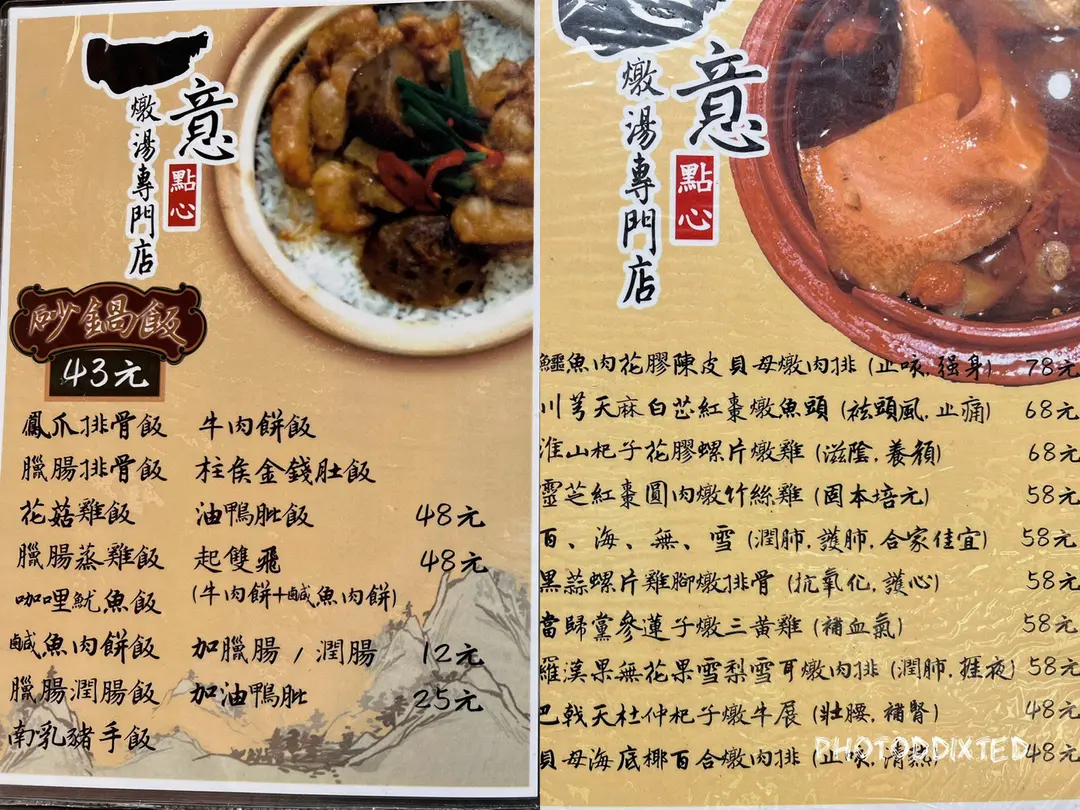 一
意
點心
燉湯專門店
砂鍋飯
43元
鳳爪排骨飯 牛肉餅飯
臘腸排骨飯 柱侯金錢肚飯
花菇雞飯 油鴨髀飯 48元
臘腸蒸雞飯 起雙飛 48元
咖哩魷魚飯 (牛肉餅+鹹魚肉餅)
鹹魚肉餅飯 加臘腸 / 潤腸 12元
臘腸潤腸飯 加油鴨髀 25元
南乳豬手飯
意
點心
燉湯專門店
鱷魚肉花膠陳皮貝母燉肉排 (止咳, 强身) 78元
川芎天麻白芷紅棗燉魚頭 (祛頭風, 止痛) 68元
淮山杞子花膠螺片燉雞 (滋陰, 養顏) 68元
靈芝紅棗圓肉燉竹絲雞 (固本培元) 58元
百、海、無、雪 (潤肺, 護肺, 合家佳宜) 58元
黑蒜螺片雞腳燉排骨 (抗氧化, 護心) 58元
當歸黨參蓮子燉三黃雞 (補血氣) 58元
羅漢果無花果雪梨雪耳燉肉排 (潤肺, 捱夜) 58元
巴戟天杜仲杞子燉牛展 (壯腰, 補腎) 48元
貝母海底椰百合燉肉排 (止咳, 清熱) 48元
PHOTODDIXTED